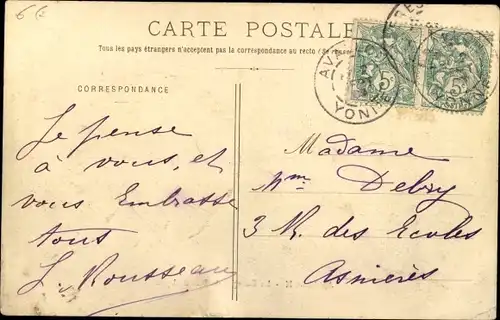 6 €
CARTE POSTALE
Tous les pays étrangers n'acceptent pas la correspondance au recto
CORRESPONDANCE
Je pense
à vous, et
vous Embrasse
tous
L. Rousseau
AVA
YONNE
5c
5c
Madame
Wm Debry
3 R. des Ecoles
Asnières